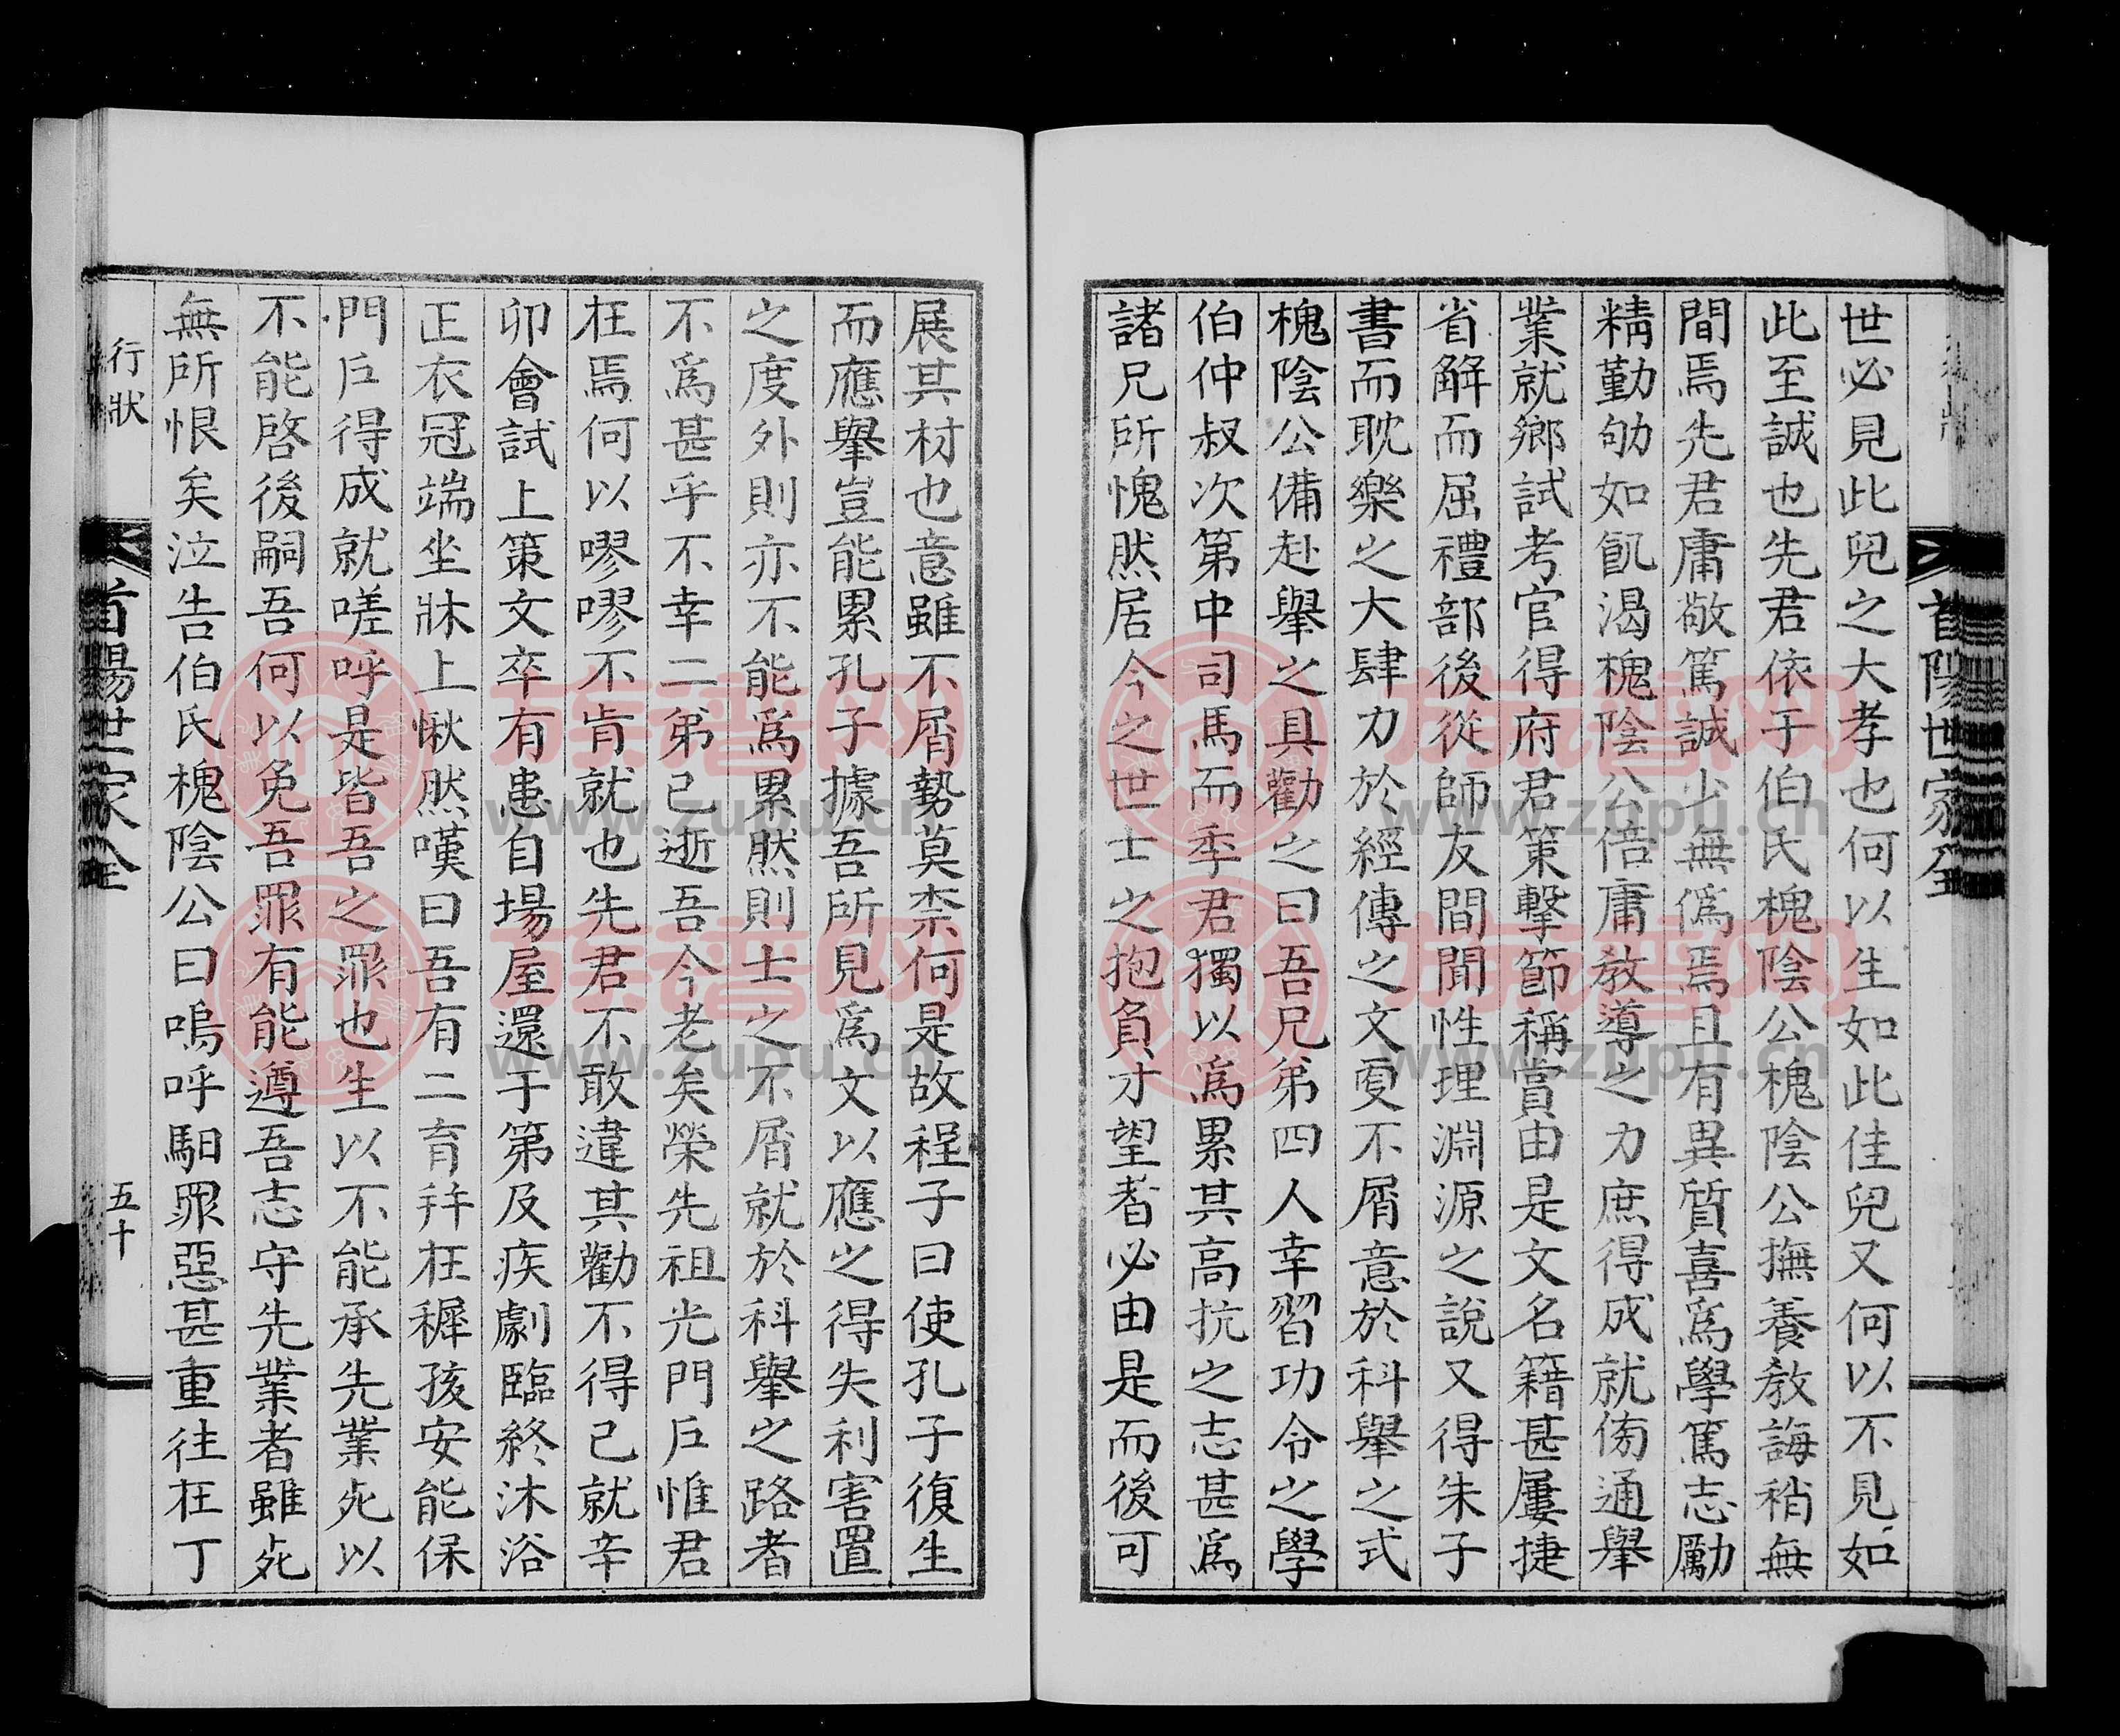 首陽世家全
世必見此兒之大孝也何以生如此佳兒又何以不見如
此至誠也先君依于伯氏槐陰公槐陰公撫養教誨稍無
間焉先君庸敬篤誠少無僞焉且有異質喜爲學篤志勵
精勤劬如飢渴槐陰公倍庸教導之力庶得成就傍通舉
業就鄉試考官得府君策擊節稱賞由是文名籍甚屢捷
省解而屈禮部後從師友間聞性理淵源之說又得朱子
書而耽樂之大肆力於經傳之文更不屑意於科舉之式
槐陰公備赴舉之具勸之曰吾兄弟四人幸習功令之學
伯仲叔次第中司馬而季君獨以爲累其高抗之志甚爲
諸兄所愧然居今之世士之抱負才望者必由是而後可
展其材也意雖不屑勢莫柰何是故程子曰使孔子復生
而應舉豈能累孔子據吾所見爲文以應之得失利害置
之度外則亦不能爲累然則士之不屑就於科舉之路者
不爲甚乎不幸二弟已逝吾今老矣榮先祖光門戶惟君
在焉何以嘐嘐不肯就也先君不敢違其勸不得已就辛
卯會試上策文卒有患自場屋還于第及疾劇臨終沐浴
正衣冠端坐牀上愀然嘆曰吾有二育幷在穉孩安能保
門戶得成就嗟呼是皆吾之罪也生以不能承先業死以
不能啓後嗣吾何以免吾罪有能遵吾志守先業者雖死
無所恨矣泣告伯氏槐陰公曰嗚呼馹罪惡甚重往在丁
行狀
首陽世家全
五十
族譜网
www.zupu.cn
族譜网
www.zupu.cn
族譜网
www.zupu.cn
族譜网
www.zupu.cn